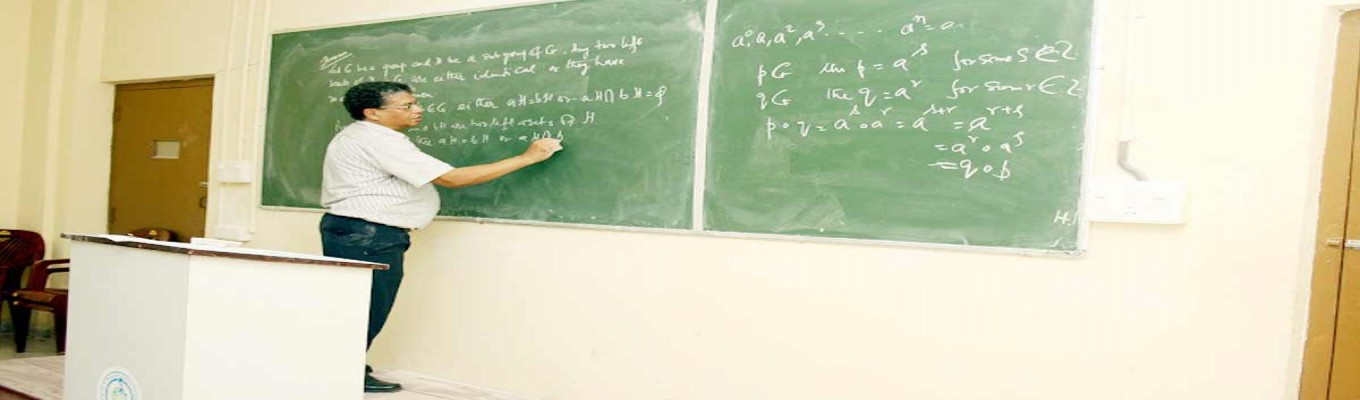 Theorem
Let G be a group and H be a subgroup of G. Any two left
of are either identical or they have
∈ G either aH=bH or aH∩bH=φ
and bH are two left cosets of H
aH=bH or aH∩b
a⁰, a, a², a³ . . . . . aⁿ = a
p∈ the p = aˢ for some s ∈ Z
q∈ the q = aʳ for some r ∈ Z
p∘q = aˢ∘aʳ = aˢ⁺ʳ = aʳ⁺ˢ
= aʳ∘aˢ
= q∘p
H